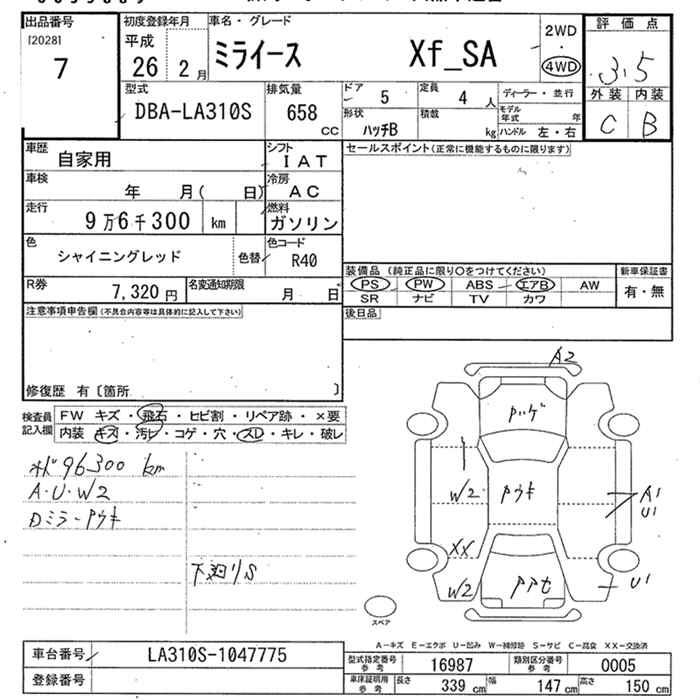 出品番号
[2028]
7
初度登録年月
平成
26 2月
車名・グレード
ミライース Xf_SA
2WD
4WD
評価点
3.5
外装 内装
C B
型式
DBA-LA310S
排気量
658 CC
ドア 5
定員 4 人
ディーラー・並行
形状 ハッチB
積載 kg
モデル年式 年
ハンドル 左・右
車歴 自家用
シフト IAT
セールスポイント(正常に機能するものに限ります)
車検 年 月( 日)
冷房 AC
走行 9万6千300 km
燃料 ガソリン
色 シャイニングレッド
色替
色コード R40
装備品 (純正品に限り○をつけてください)
新車保証書
PS PW ABS エアB AW
有・無
SR ナビ TV カワ
R券 7,320円
名変通知期限 月 日
後日品
注意事項申告欄(不具合内容等は具体的に記入して下さい)
修復歴 有〔箇所 〕
検査員記入欄
FW キズ・飛石・ヒビ割・リペア跡・×要
内装 キズ・汚レ・コゲ・穴・スレ・キレ・破レ
96300 km
A・U・W2
Dミラーアウキ
下廻りS
A2
W2
アウキ
A1
U1
XX
W2
U1
スペア
A-キズ E-エクボ U-凹み W-補修跡 S-サビ C-腐食 XX-交換済
車台番号 LA310S-1047775
登録番号
型式指定番号 参考 16987
類別区分番号 参考 0005
車床証明用 参考
長さ 339 cm 幅 147 cm 高さ 150 cm